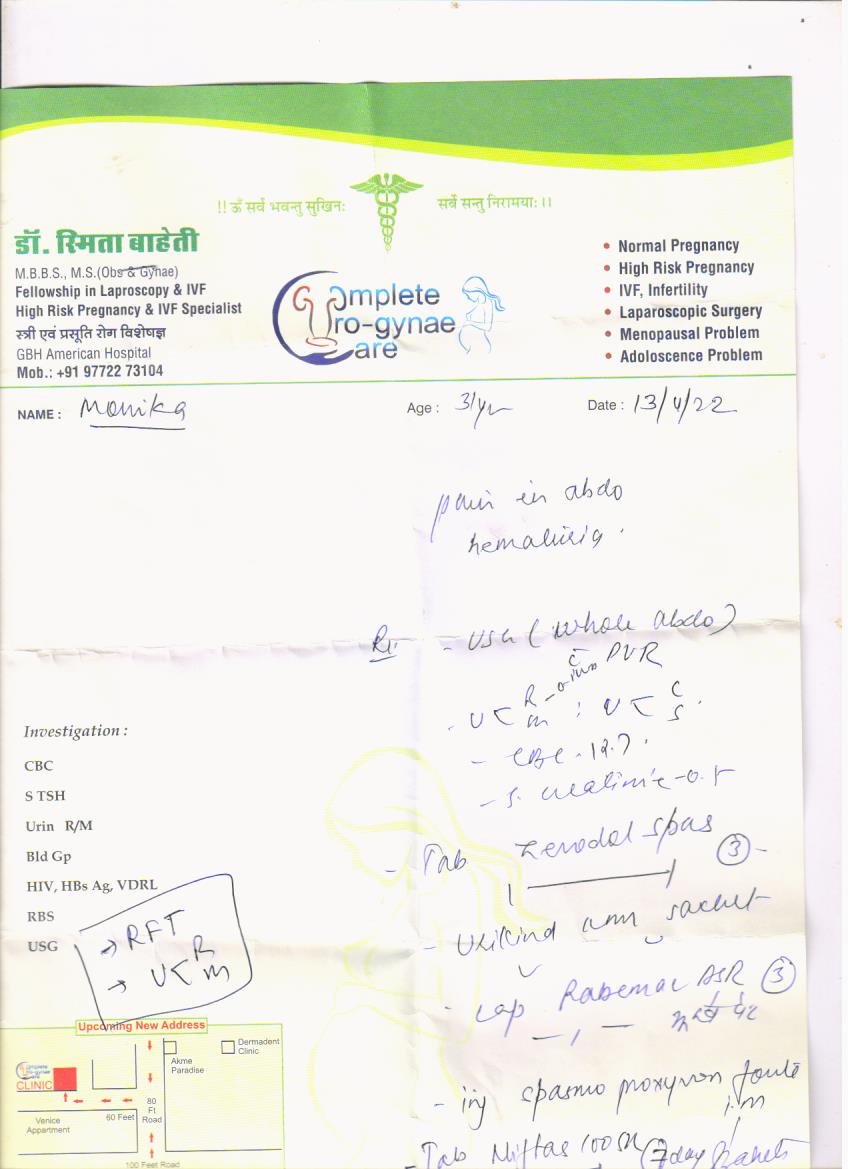 !! ॐ सर्वे भवन्तु सुखिनः सर्वे सन्तु निरामयाः ।।
डॉ. स्मिता बाहेती
M.B.B.S., M.S.(Obs & Gynae)
Fellowship in Laproscopy & IVF
High Risk Pregnancy & IVF Specialist
स्त्री एवं प्रसूति रोग विशेषज्ञ
GBH American Hospital
Mob.: +91 97722 73104
Complete
Uro-gynae
Care
• Normal Pregnancy
• High Risk Pregnancy
• IVF, Infertility
• Laparoscopic Surgery
• Menopausal Problem
• Adoloscence Problem
NAME : Monika Age : 31yr Date : 13/4/22
pain in abdo
hematuria.
- USG (Whole abdo)
c PVR
- U < R m ; U < C S.
- CBC - 12.7.
- S. creatinine - 0.7
- Tab Zerodol spas 3 -
- Urikind sachet
- Cap Rabemac DSR 3
- inj spasmo proxyvon forte
i.m
- Tab Niftas 100 (7day
Investigation :
CBC
S TSH
Urin R/M
Bld Gp
HIV, HBs Ag, VDRL
RBS
USG
→ RFT
→ U < R m
Upcoming New Address
Complete
Uro-gynae
Care
CLINIC
Akme
Paradise
Dermadent
Clinic
Venice
Appartment
60 Feet
80
Ft
Road
100 Feet Road